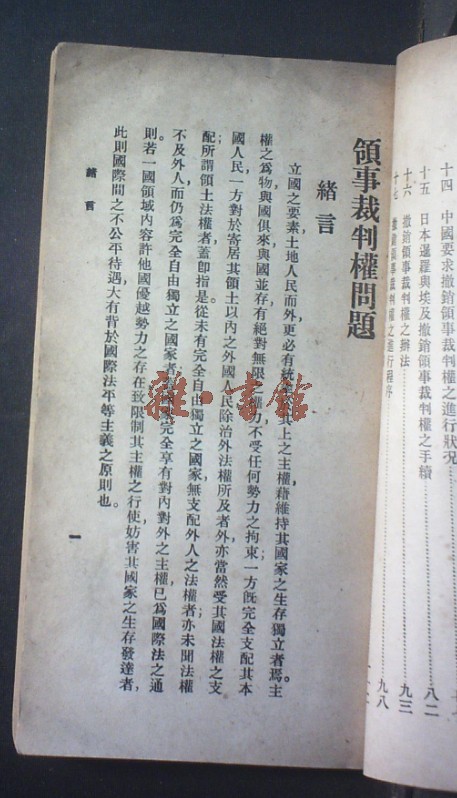 十四 中國要求撤銷領事裁判權之進行狀況
十五 日本暹羅與埃及撤銷領事裁判權之手續……八二
十六 撤銷領事裁判權之辦法……九三
十七 撤銷領事裁判權之進行程序……九八
領事裁判權問題
緒言
立國之要素土地人民而外更必有統其上之主權藉維持其國家之生存獨立者焉。主
權之爲物與國俱來與國並存有絕對無限之權力不受任何勢力之拘束一方既完全支配其本
國人民一方對於寄居其領土以內之外國人民除治外法權所及者外亦當然受其國法權之支
配所謂領土法權者蓋卽指是從未有完全自由獨立之國家無支配外人之法權者亦未聞法權
不及外人而仍爲完全自由獨立之國家者家完全享有對內對外之主權已爲國際法之通
則。若一國領域內容許他國優越勢力之存在致限制其主權之行使妨害其國家之生存發達者,
此則國際間之不公平待遇大有背於國際法平等主義之原則也。
緒言
一
雜·書館